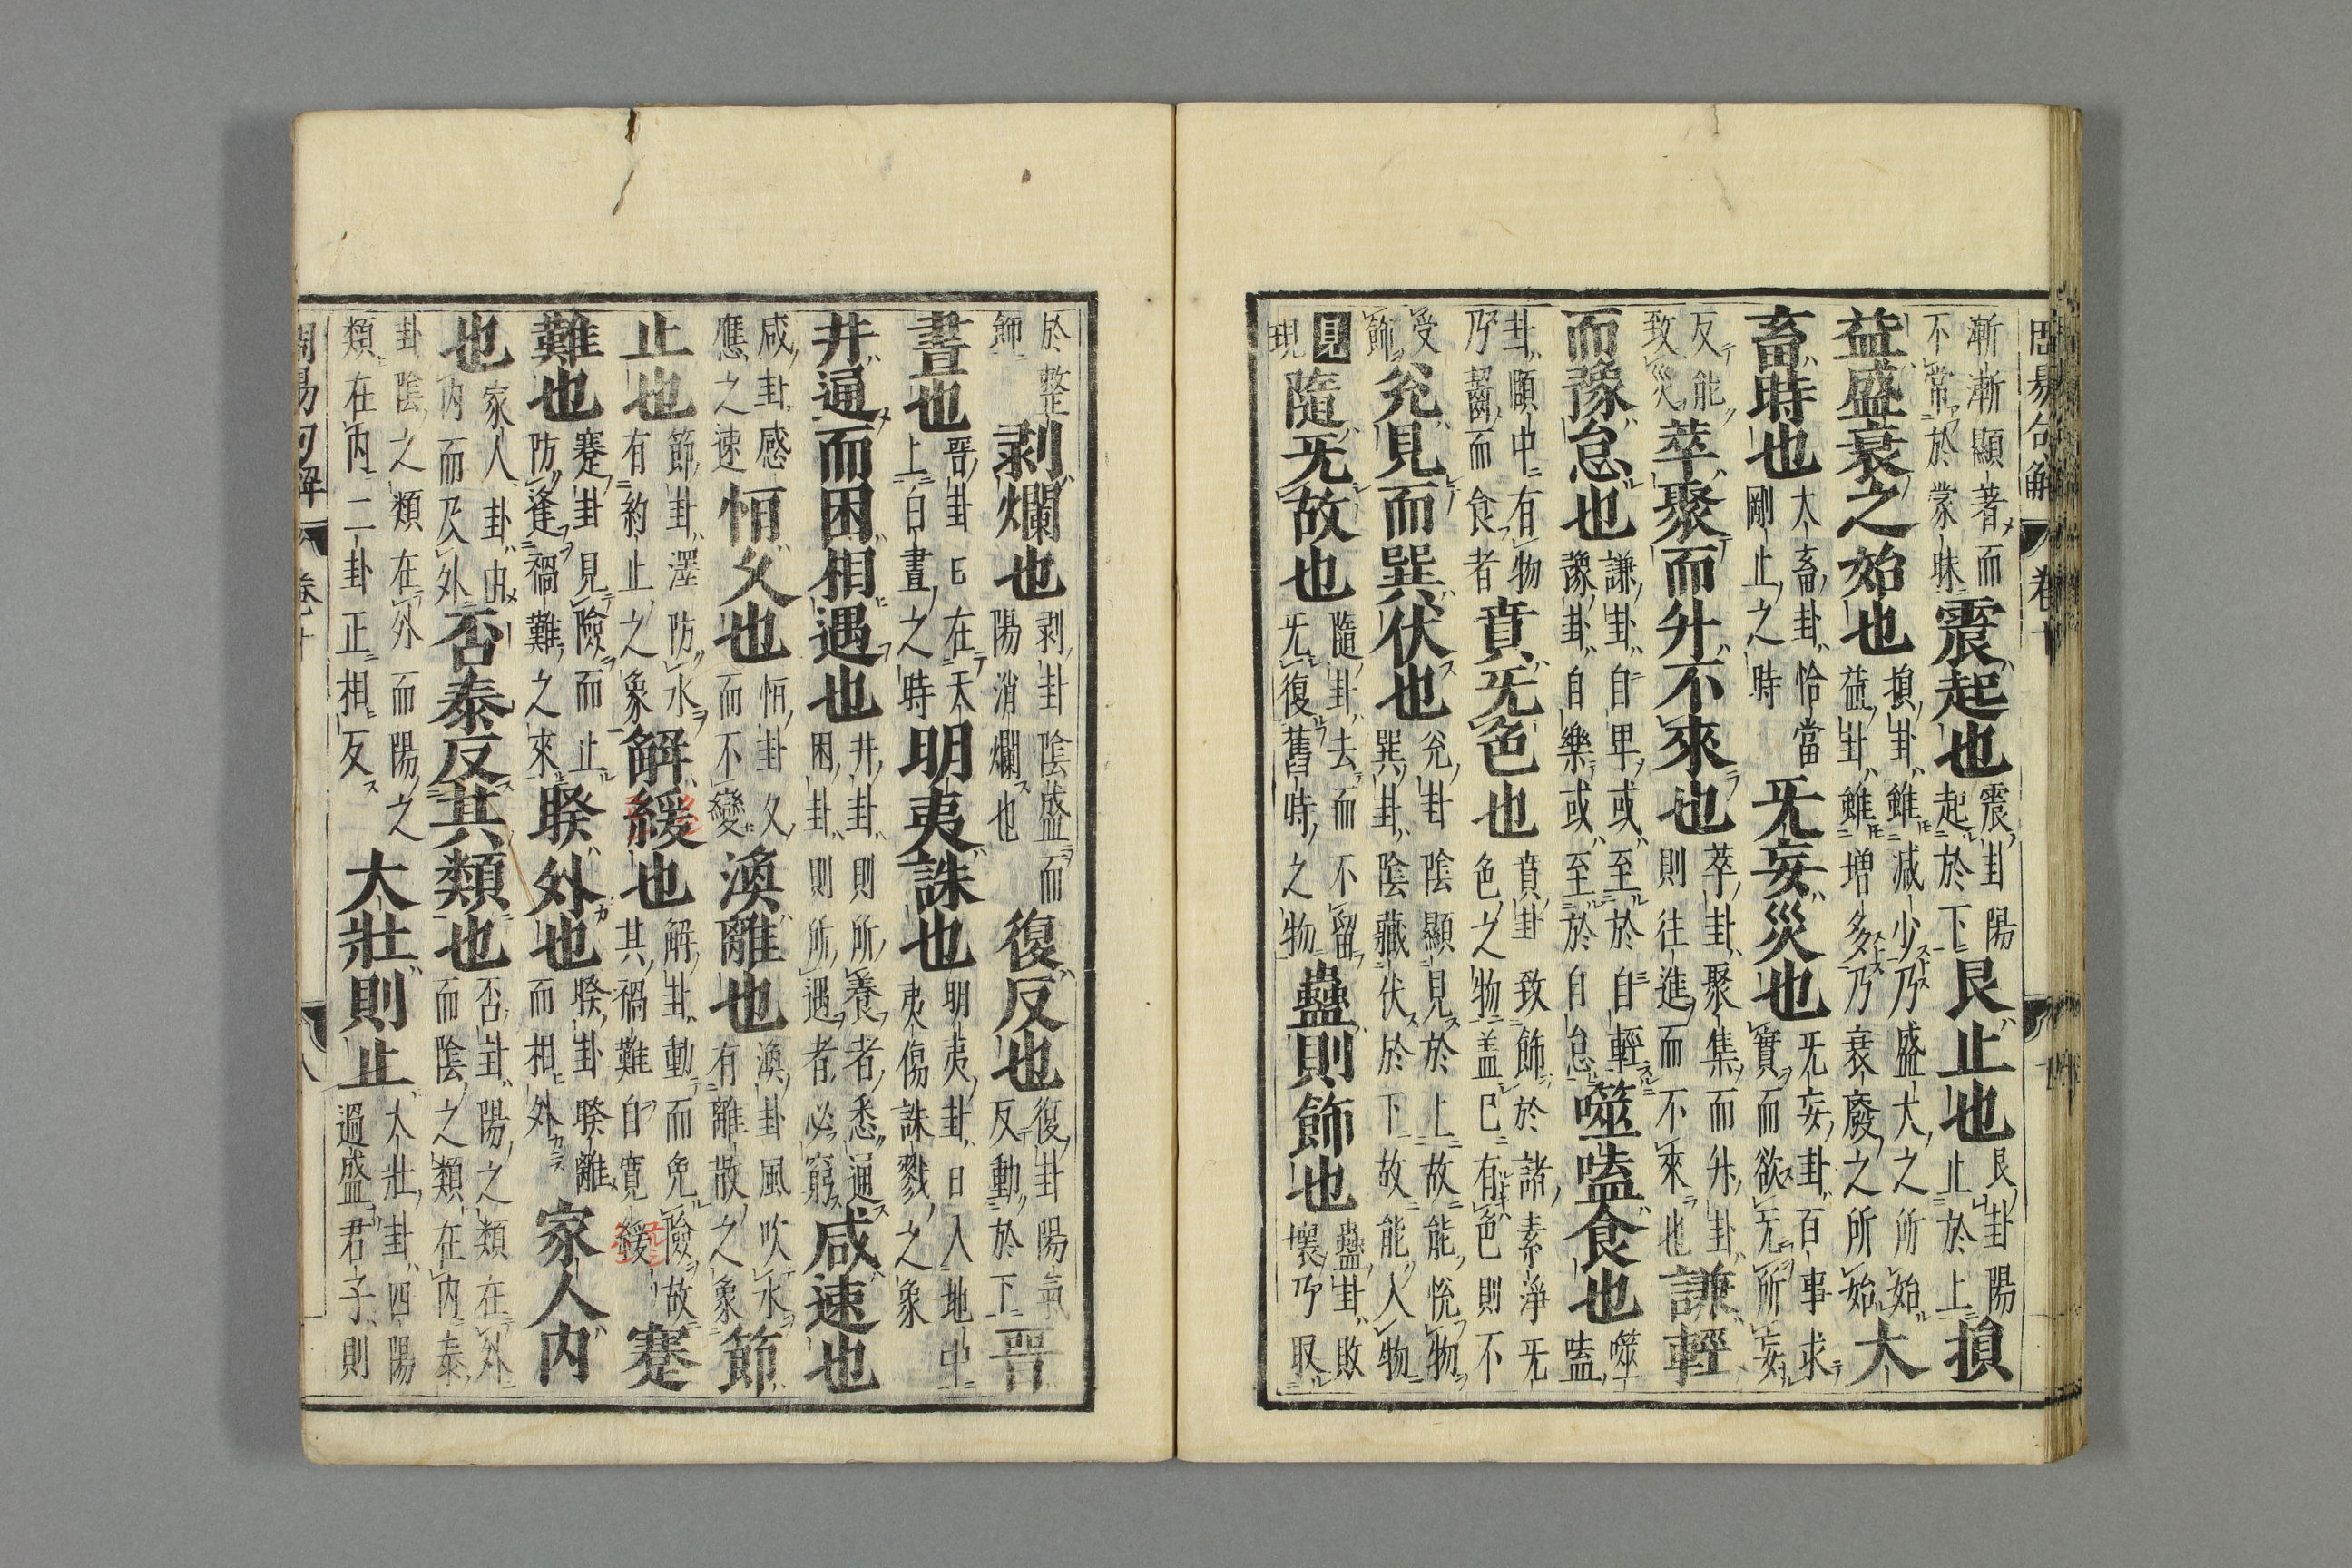 周易句解 卷十 十
漸漸顯著而不常於蒙昧震起也震卦陽起於下艮止也艮卦陽止於上損
益盛衰之始也損卦雖減少乃盛大之所始益卦雖增多乃衰廢之所始大
畜時也大畜卦恰當剛止之時无妄災也无妄卦百事求實而欲无所妄
反能致災萃聚而升不來也萃卦聚集而升卦則往進而不來也謙輕
而豫怠也謙卦自卑或至於自輕豫卦自樂或至於自怠噬嗑食也噬嗑
卦頤中有物乃齧而食者賁无色也賁卦致飾於諸素淨无色之物盖已有色則不
受飾兌見而巽伏也兌卦陰顯見於上故能悅物巽卦陰藏伏於下故能入物
見現隨无故也隨卦去而不留无復舊時之物蠱則飾也蠱卦敗壞乃取
於整飾剥爛也剥卦陰盛而陽消爛也復反也復卦陽氣反動於下晉
晝也晉卦日在天上白晝之時明夷誅也明夷卦日入地中夷傷誅戮之象
井通而困相遇也井卦則所養者悉通困卦則所遇者必窮咸速也
咸卦感應之速恒久也恒卦久而不變渙離也渙卦風吹水有離散之象節
止也節卦澤防水有約止之象解緩也解卦動而免險故其禍難自寬緩蹇
難也蹇卦見險而止防逢禍難之來睽外也睽卦睽離而相外家人内
也家人卦由内而及外否泰反其類也否卦陽之類在外而陰之類在内泰
卦陰之類在外而陽之類在内二卦正相反大壯則止大壯卦四陽過盛君子則
周易句解 卷十